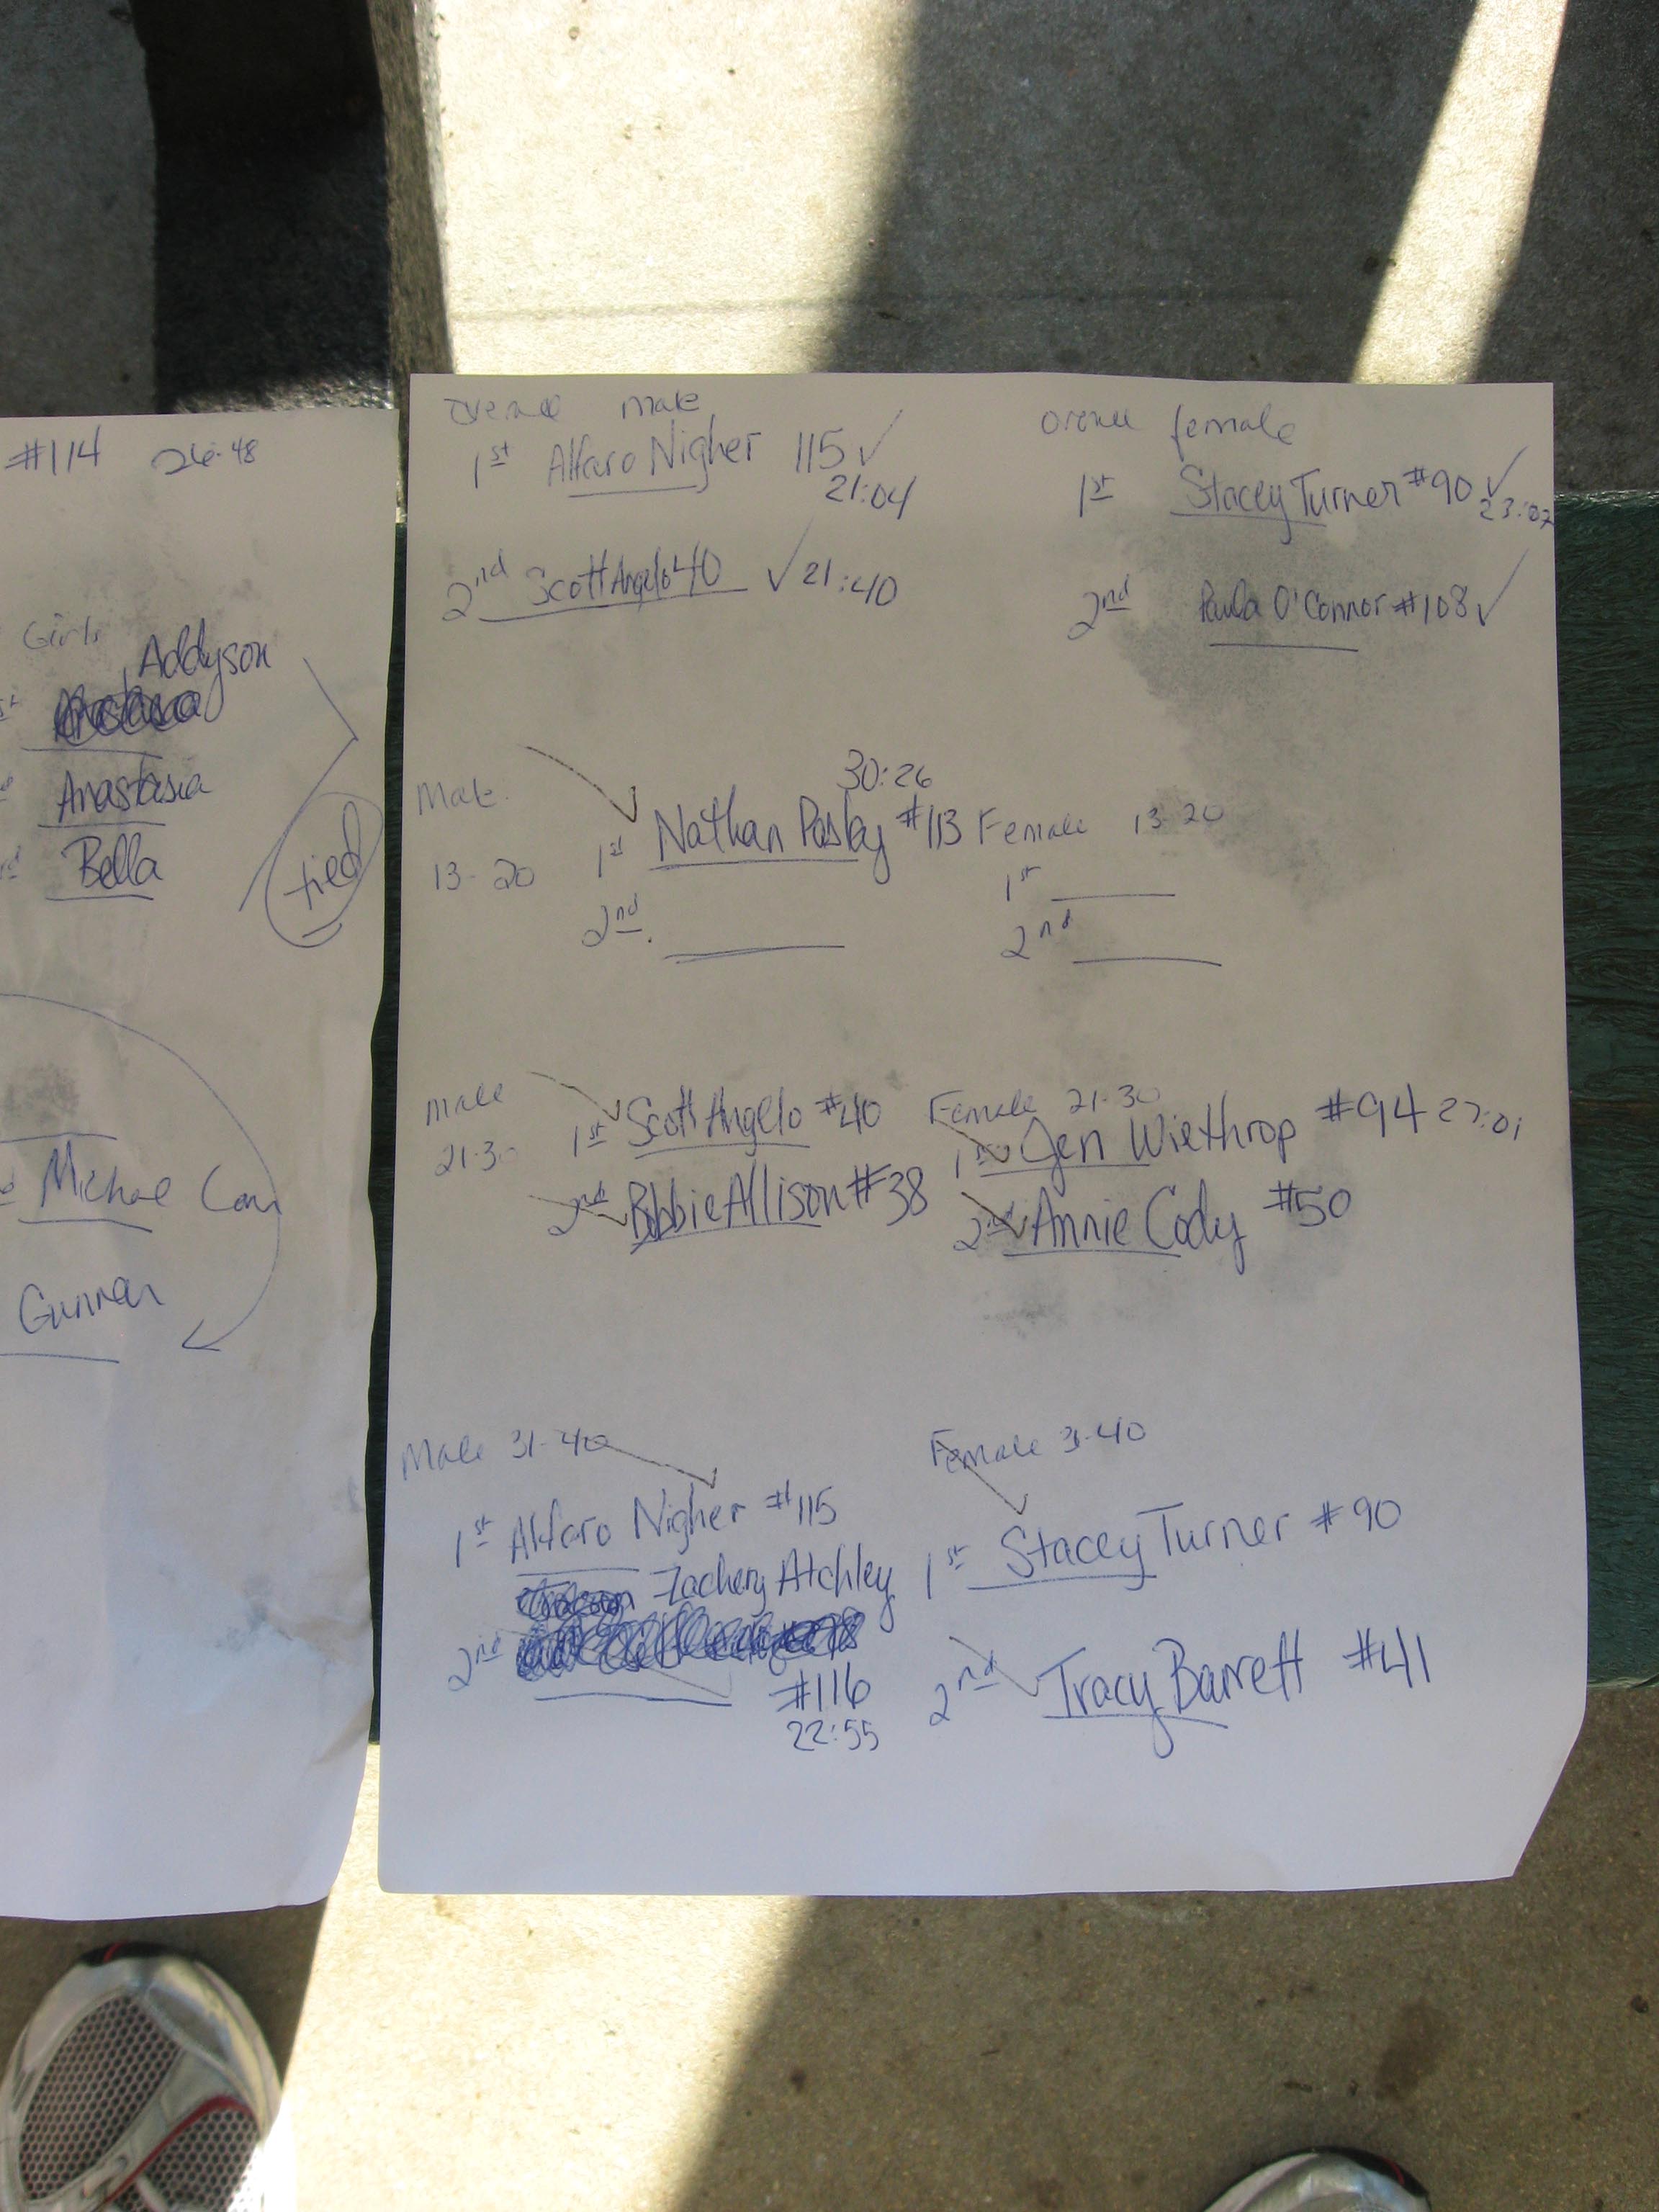 #114 26:48
Girls
Addyson
Anastasia
Bella
tied
Michael Can
Gunnar
overall male
1st Alfaro Nigher 115 ✓
21:04
2nd Scott Angelo 40 ✓ 21:40
overall female
1st Stacey Turner #90 ✓
23:07
2nd Paula O'Connor #108 ✓
Male
13-20
30:26
1st Nathan Pasley #113
2nd
Female 13-20
1st
2nd
Male
21-30
1st Scott Angelo #40
2nd Bobbie Allison #38
Female 21-30
1st Jen Wiethrop #94 27:01
2nd Annie Cody #50
Male 31-40
1st Alfaro Nigher #115
Zachery Atchley
2nd
#116
22:55
Female 31-40
1st Stacey Turner #90
2nd Tracy Barrett #41